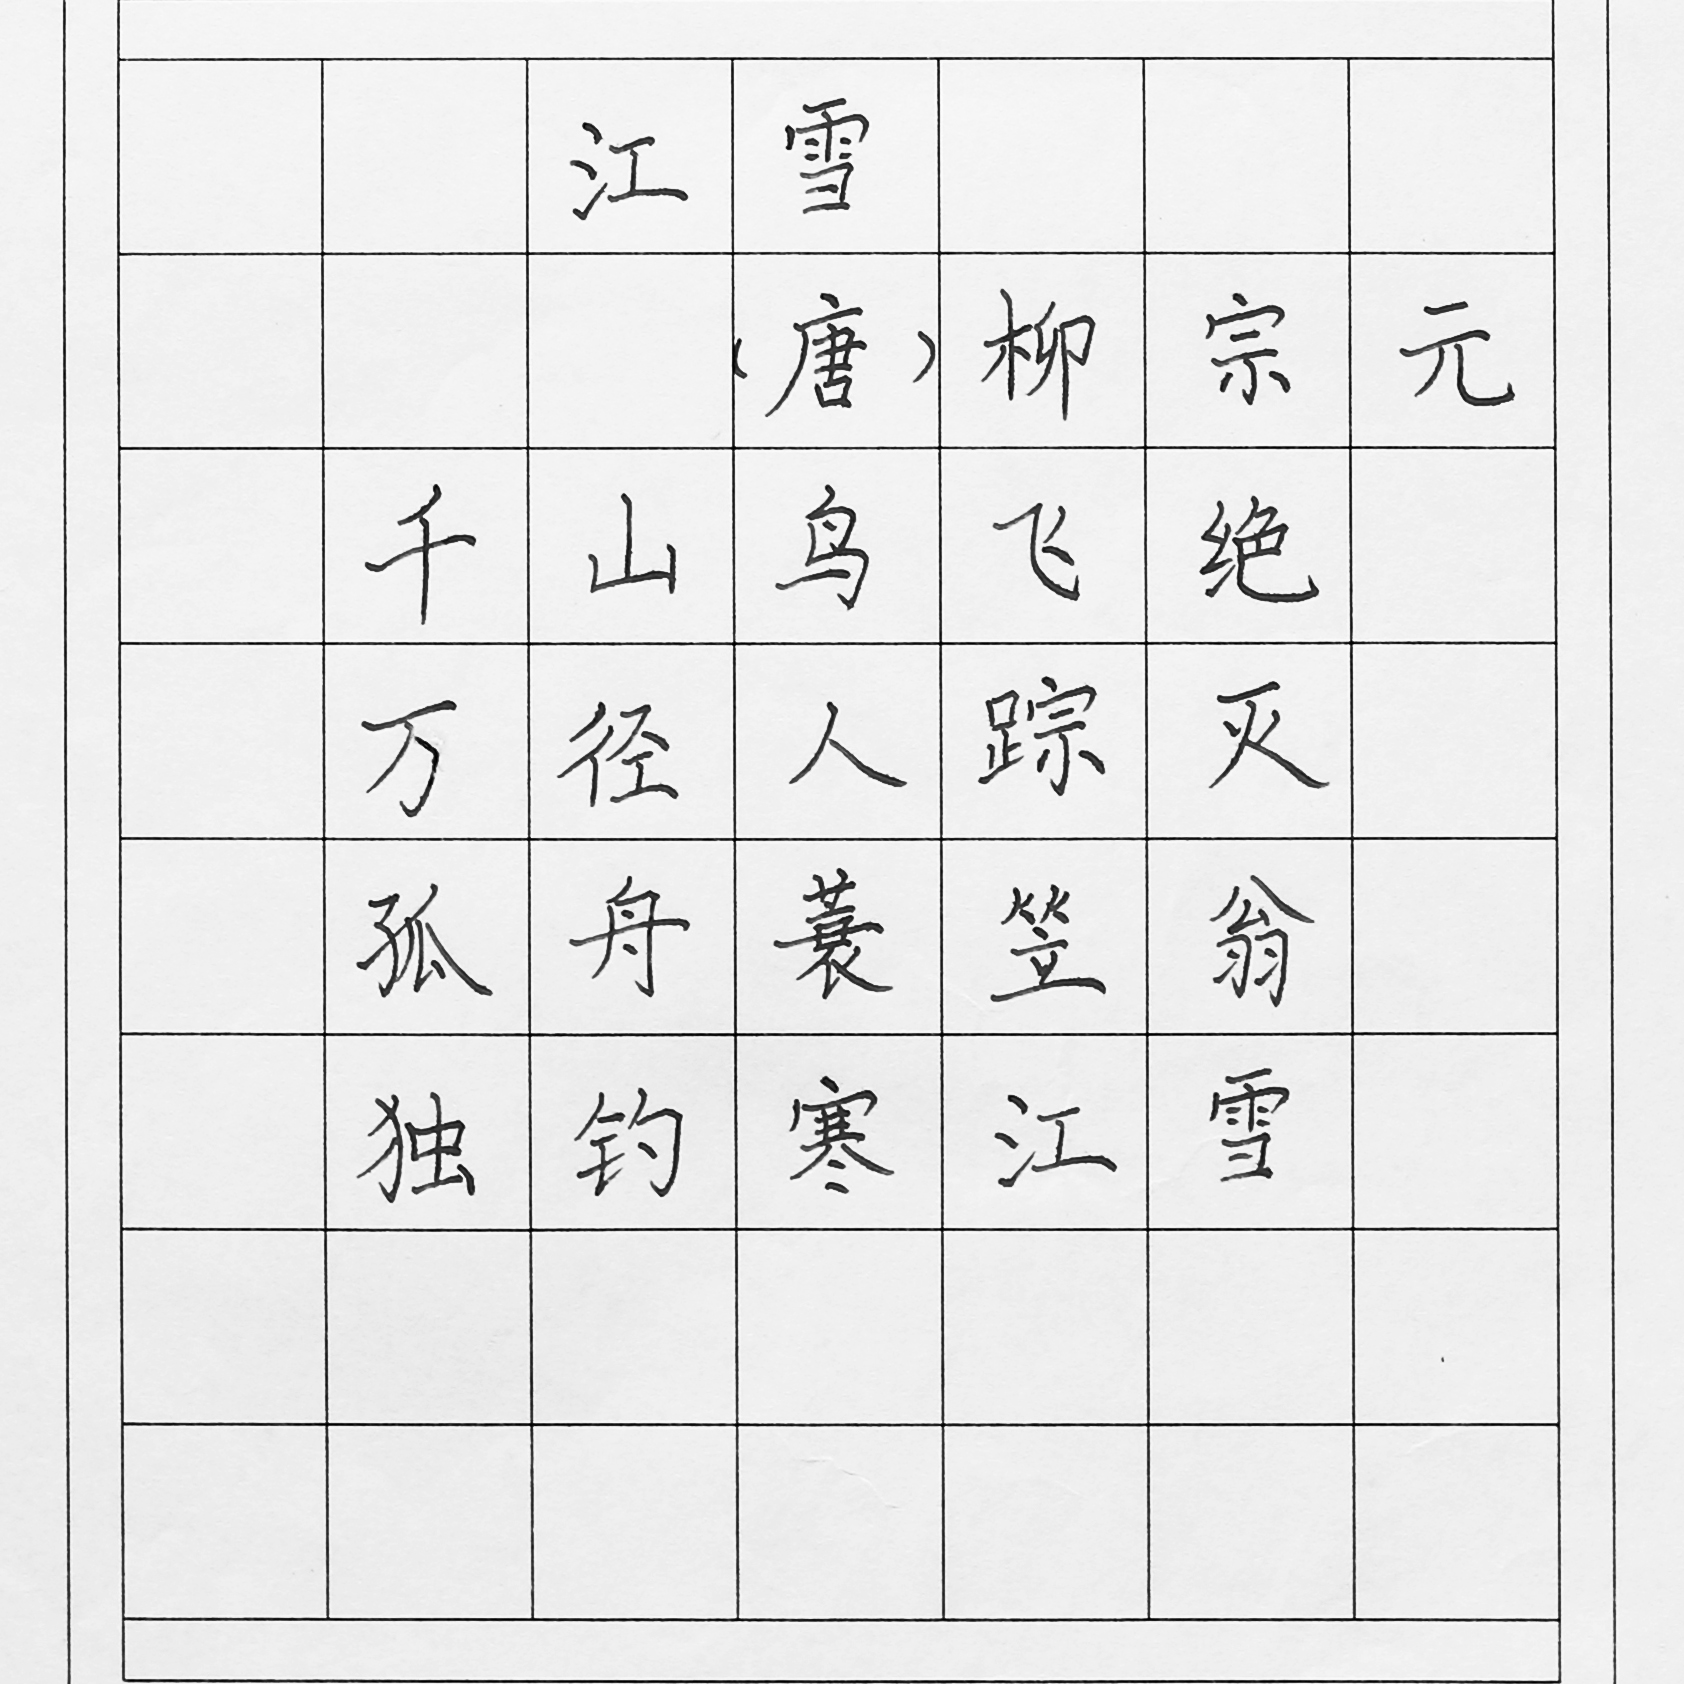 江雪
（唐）柳宗元
千山鸟飞绝
万径人踪灭
孤舟蓑笠翁
独钓寒江雪